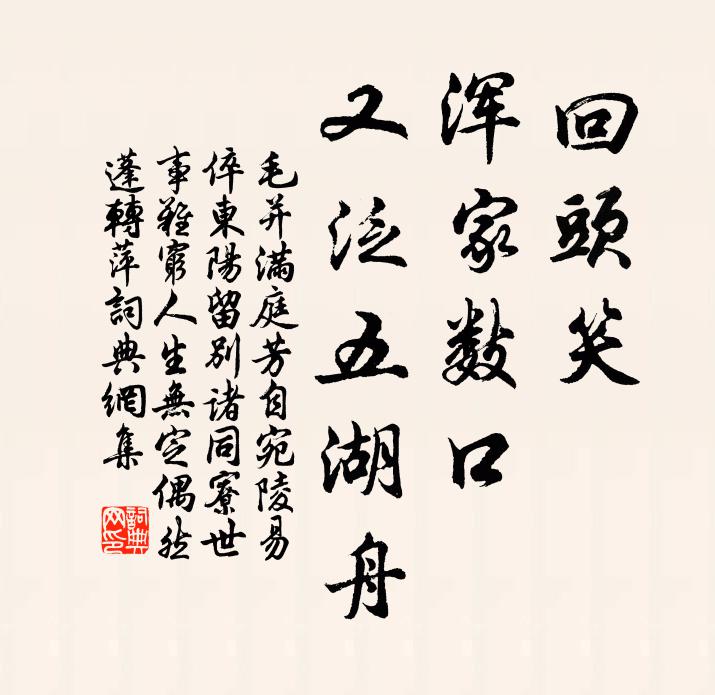 回頭笑
渾家數口
又泛五湖舟
毛并滿庭芳自宛陵易
倅東陽留別諸同寮世
事難窮人生無定偶然
蓬轉萍詞典網集
詞典網印